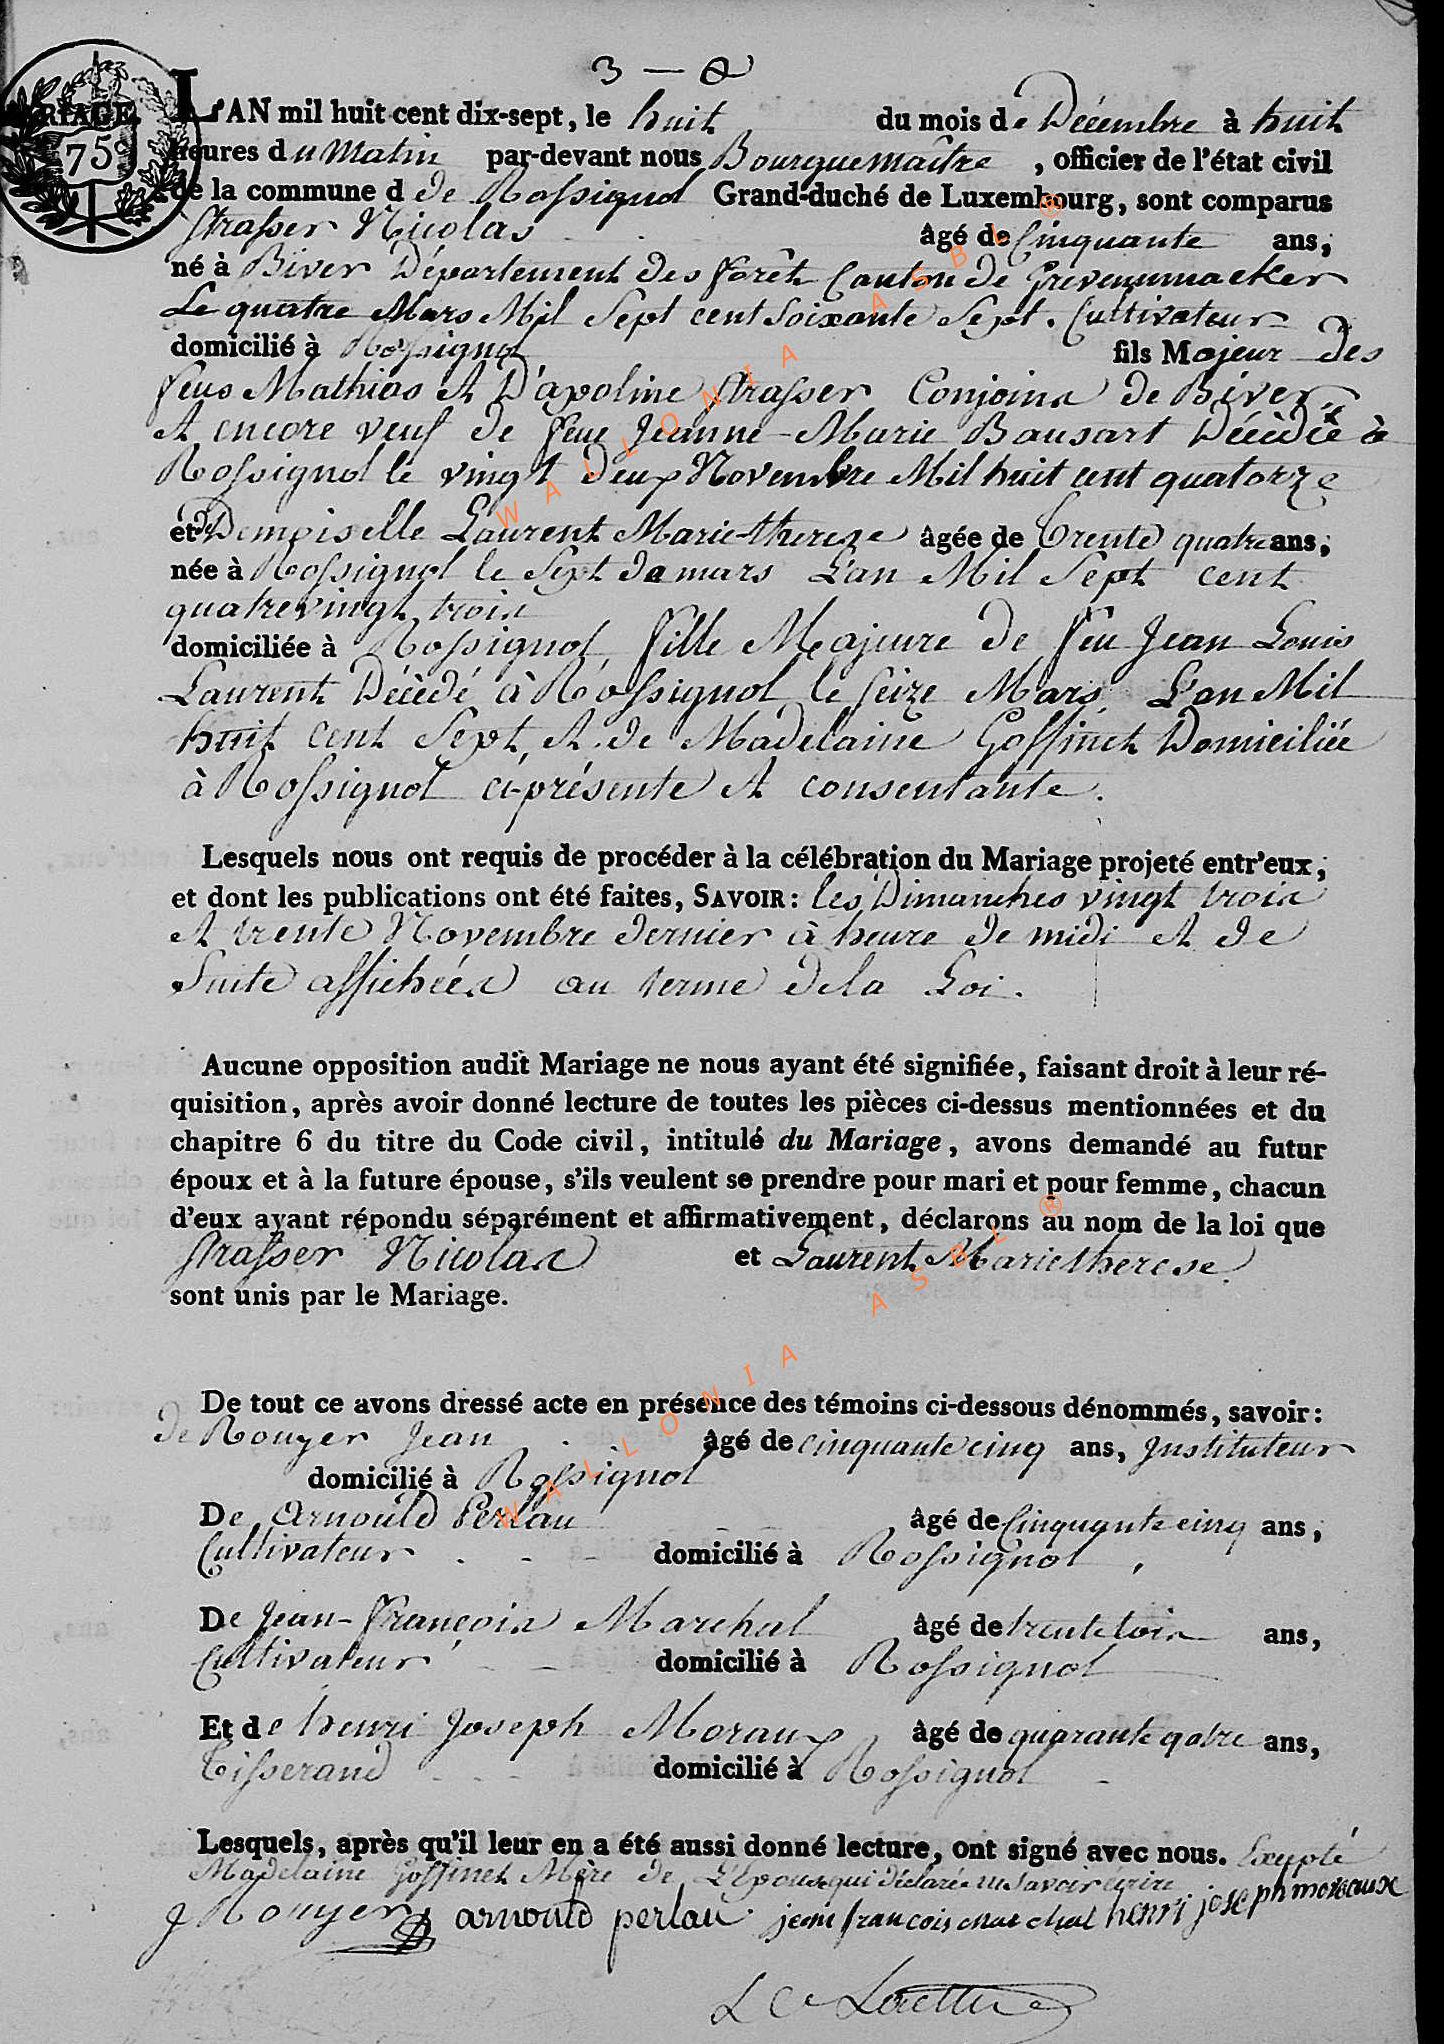 3 — 8
MARIAGE.
75
L'AN mil huit cent dix-sept, le huit du mois de Décembre à huit
heures du Matin par-devant nous Bourguemaître, officier de l'état civil
de la commune d de Rossignol Grand-duché de Luxembourg, sont comparus
Strasser Nicolas âgé de Cinquante ans,
né à Biver Département des forêts Canton de Grevenmacker
Le quatre Mars Mil Sept cent Soixante Sept. Cultivateur
domicilié à Rossignol fils Majeur des
feus Mathias et D'apoline Strasser Conjoins de Biver,
et encore veuf de feue Jeanne-Marie Bausart Décédée à
Rossignol le vingt deux Novembre Mil huit cent quatorze
et Demoiselle Laurent Marie-therese âgée de Trente quatre ans,
née à Rossignol le Sept de mars L'an Mil Sept cent
quatrevingt trois
domiciliée à Rossignol, fille Majeure de feu Jean Louis
Laurent Décédé à Rossignol le Seize Mars, L'an Mil
huit cent Sept, et de Madelaine Goffinet Domiciliée
à Rossignol ci-présente et consentante.
Lesquels nous ont requis de procéder à la célébration du Mariage projeté entr'eux,
et dont les publications ont été faites, SAVOIR : les Dimanches vingt trois
et trente Novembre dernier à heure de midi et de
Suite affichées au terme de la Loi.
Aucune opposition audit Mariage ne nous ayant été signifiée, faisant droit à leur ré-
quisition, après avoir donné lecture de toutes les pièces ci-dessus mentionnées et du
chapitre 6 du titre du Code civil, intitulé du Mariage, avons demandé au futur
époux et à la future épouse, s'ils veulent se prendre pour mari et pour femme, chacun
d'eux ayant répondu séparément et affirmativement, déclarons au nom de la loi que
Strasser Nicolas et Laurent Marie therese
sont unis par le Mariage.
De tout ce avons dressé acte en présence des témoins ci-dessous dénommés, savoir :
de Rouyer Jean âgé de cinquante cinq ans, Instituteur
domicilié à Rossignol
De Arnould Perlau âgé de Cinquante cinq ans,
Cultivateur domicilié à Rossignol,
De Jean-François Marchal âgé de trente trois ans,
Cultivateur domicilié à Rossignol
Et de henri Joseph Moraux âgé de quarante qatre ans,
Tisserand domicilié à Rossignol
Lesquels, après qu'il leur en a été aussi donné lecture, ont signé avec nous. Exepté
Madelaine Goffinet Mère de L'Epouse qui déclare ne savoir écrire
J Rouyer arnould perlau jean francois marchal henri joseph moreaux
WALLONIA ASBL ®
WALLONIA ASBL ®